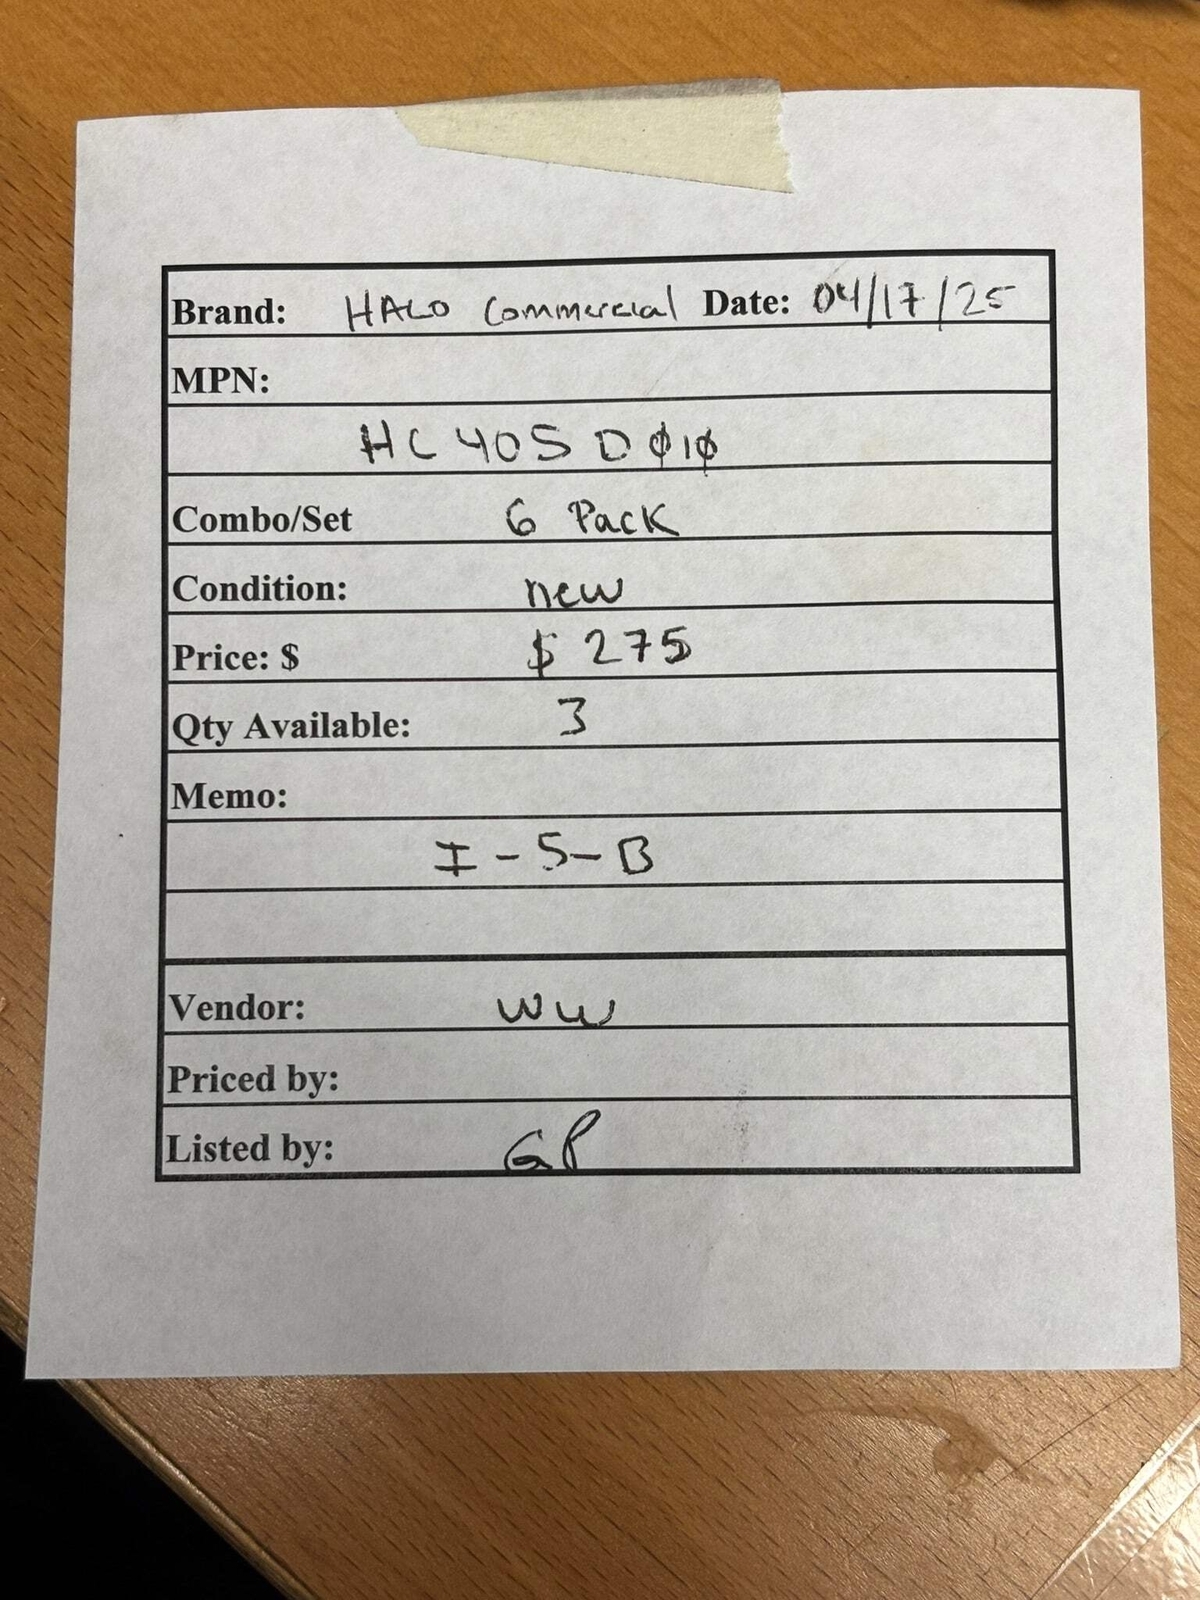 Brand: HALO Commercial Date: 04/17/25
MPN:
HC 405 D010
Combo/Set 6 Pack
Condition: new
Price: $ $ 275
Qty Available: 3
Memo:
I-5-B
Vendor: WW
Priced by:
Listed by: GP